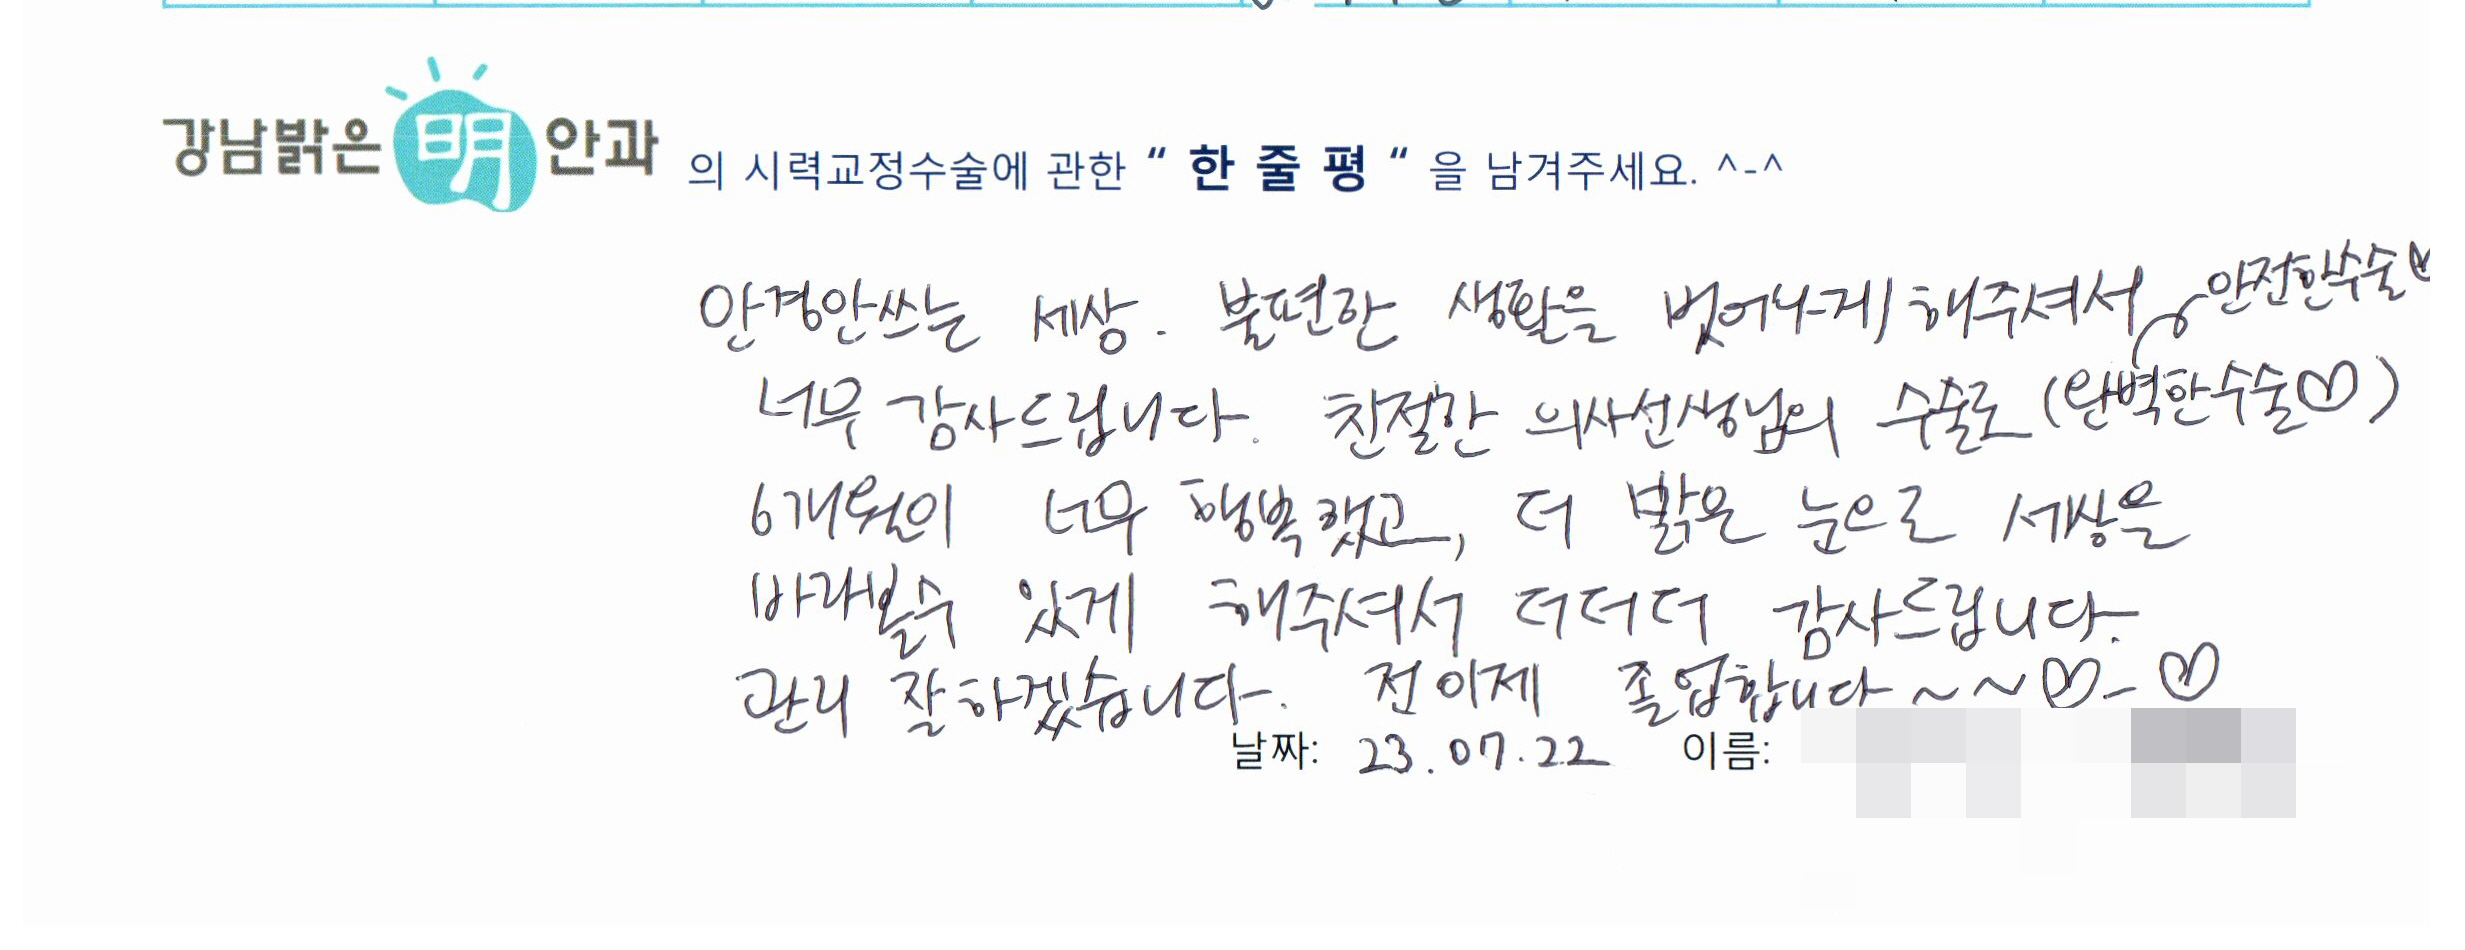 강남밝은 明 안과 의 시력교정수술에 관한 “ 한 줄 평 “ 을 남겨주세요. ^-^
안경안쓰는 세상. 불편한 생활을 벗어나게 해주셔서 안전한수술♡
너무 감사드립니다. 친절한 의사선생님의 수술로 (완벽한수술♡)
6개월이 너무 행복했고, 더 밝은 눈으로 세상을
바라볼수 있게 해주셔서 더더더 감사드립니다.
관리 잘하겠습니다. 전 이제 졸업합니다~~♡-♡
날짜: 23.07.22 이름: